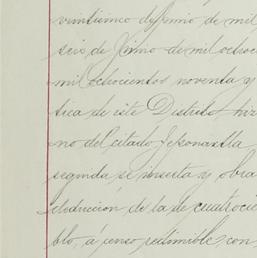 veintiunco de Junio de mil
seis de Junio de mil ochoc
mil ochocientos noventa y
tica de este Distrito hiz
no del citado
segunda se inserta y obra
deducción de la de cuatrocie
blo, á censo redimible, con